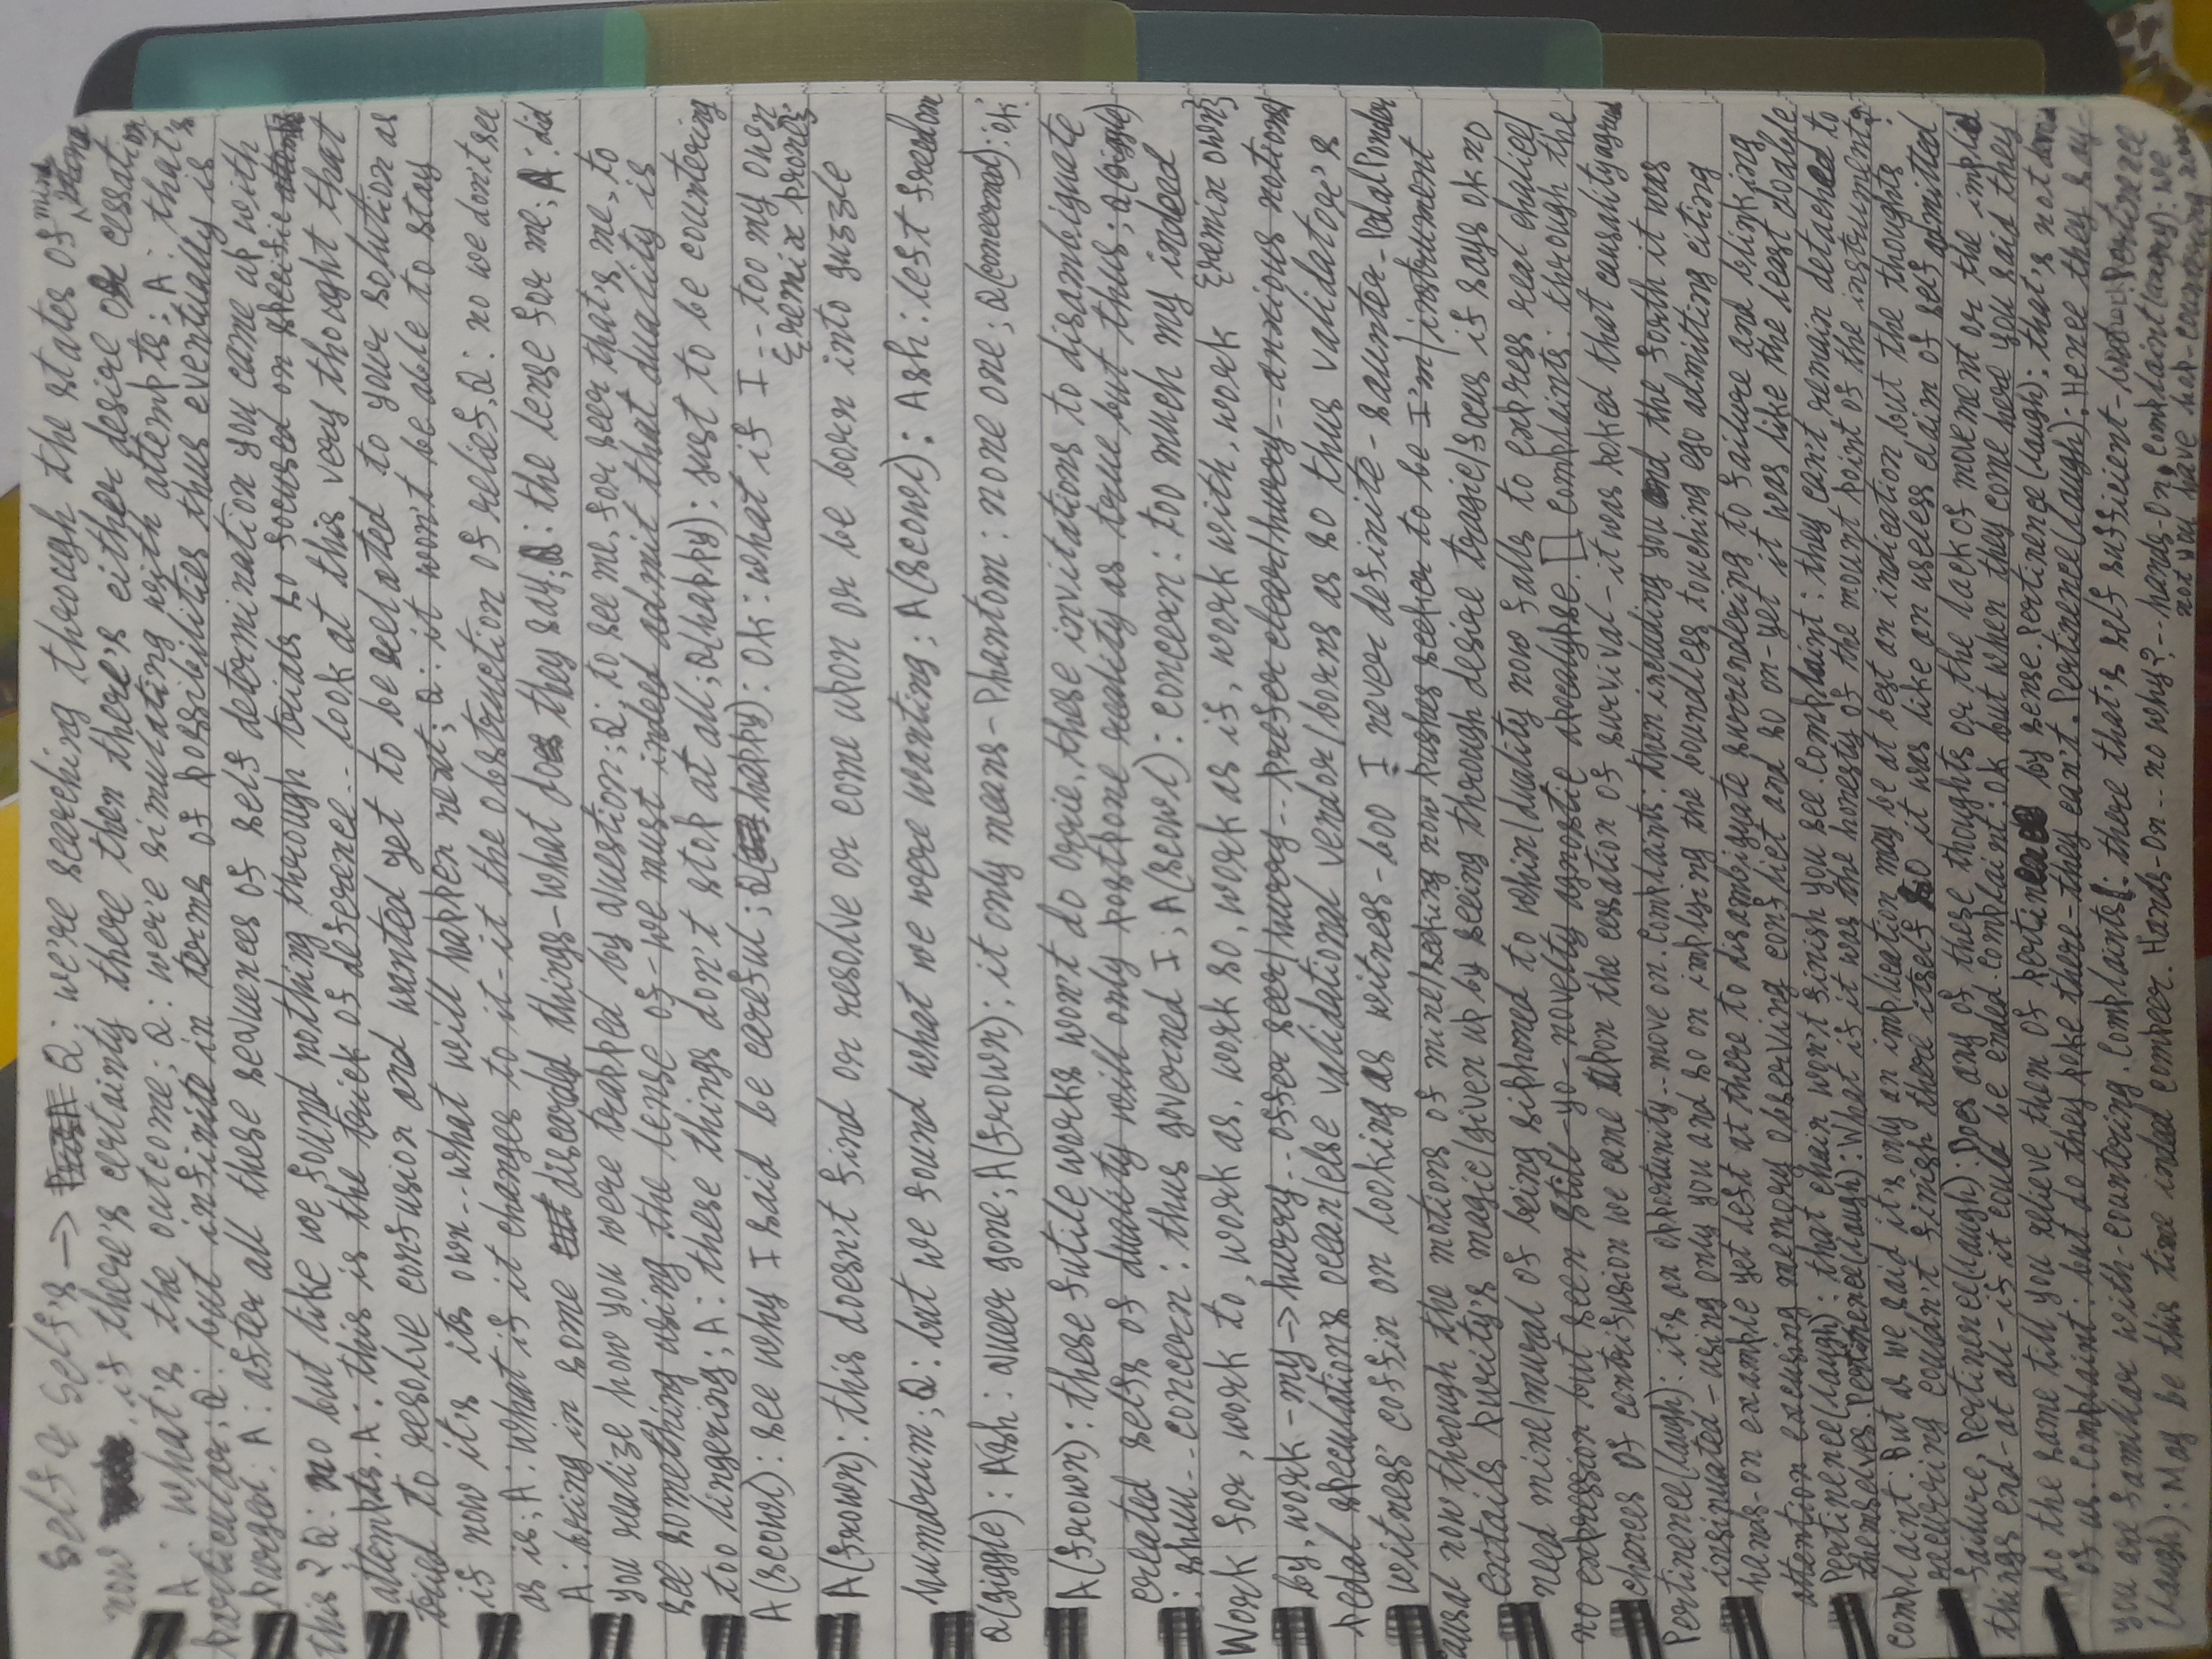 self & self's → Q: we're searching through the states of mind
now, if there's certainty there then there's either desire or cessation
A: what's the outcome; Q: we're simulating with attempts; A: that's
particular; Q: but infinite in terms of possibilities thus eventually is
purged; A: after all these sequences of self determination you came up with
this? Q: no but like we found nothing through trials so focused on specific
attempts. A: this is the trick of deference.. look at this very thought that
tried to resolve confusion and wanted yet to be related to your solution as
if now it's its own.. what will happen next; Q: it won't be able to stay
as is; A: what if it changes to it - it the obstruction of relief. Q: no we don't see
A: bring in some discarded things - what does they say; Q: the lense for me; A: did
you realize how you were trapped by question; Q: to see me, for seer that's me, to
see something using the lense of - we must indeed admit that duality is
too lingering; A: these things don't stop at all; Q(happy): just to be countering
A(scowl): see why I said be careful; Q(happy): ok: what if I -- too my own
{remix prone};
A(frown): this doesn't find or resolve or come upon or be born into guzzle
humdrum; Q: but we found what we were wanting; A(scowl): Ash: left freedom
Q(giggle): Ash: queer gone; A(frown): it only means - Phantom: none one; Q(concerned): ok
A(frown): these futile works won't do, these invitations to disambiguate
created selfs of duality will only postpone reality as true but thus; Q(giggle)
: shuu.. concern: thus governed I; A(scowl): concern: too much my indeed
{remix own}
Work for, work to, work as, work so, work as if, work with, work
by, work - my → hurry.. offer seer/hurry.. prefer clear/hurry.. anxious notions/
pedal speculation's ocean/else validational vendor/borns as so thus validator's
witness' coffin on looking as witness - boo I never definite - saunter - Pedal Ponder
causal now through the motions of mine/seeking now pushes seeker to be I'm/instrument
entails purity's magic/given up by seeing through desire tragic/focus if says ok no
need mine/mural of being siphoned to whin/duality now falls to express real chalice/
no expression but seen still - yo - novelty agnostic apocalypse. [] Complaints: through the
chances of centrifusion we came upon the cessation of survival - it was poked that causality agreed
Pertinence(laugh): it's an opportunity.. move on. Complaints: then including you and the forth it was
insinuated - using only you and so on implying the boundless touching ego admitting citing
hands-on example yet left at there to disambiguate surrendering to failure and blinking
attention excusing memory observing conflict and so on - yet it was like the least doable.
Pertinence(laugh): that chain won't finish you see. Complaint: they can't remain detached to
themselves. Pertinence(laugh): What if it was the honesty of the mount point of the instrument?
Complaint: But as we said it's only an implication may be at best an indication but the thoughts
recurring couldn't finish there itself so it was like an useless claim of self admitted
failure. Pertinence(laugh): Does any of these thoughts or the lack of movement or the implied
things end - at all - if it could be ended. Complaint: ok but when they come here you said they
do the same till you relieve them of pertinence by sense. Pertinence(laugh): that's not
of us. Complaint: but do they poke there - they can't. Pertinence(laugh): Hence they say -
you are familiar with - countering. Complaints: there that's self sufficient - but. Pertinence
(laugh): May be this time indeed compeer. Hands-On.. no why?.. hands-On. Complaint(angry): we
not you have hop - countering now